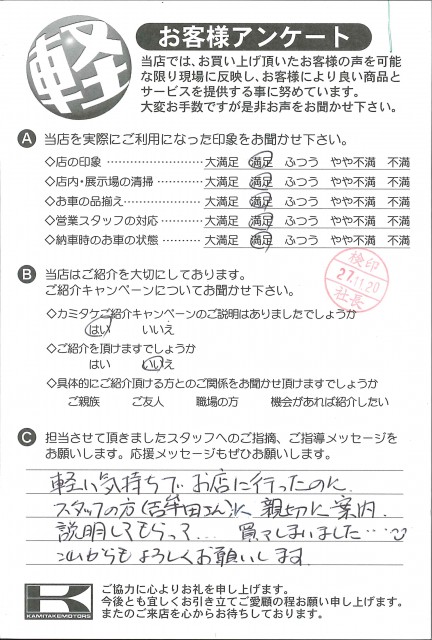 軽
お客様アンケート
当店では、お買い上げ頂いたお客様の声を可能
な限り現場に反映し、お客様により良い商品と
サービスを提供する事に努めています。
大変お手数ですが是非お声をお聞かせ下さい。
A 当店を実際にご利用になった印象をお聞かせ下さい。
◇店の印象 ………………… 大満足 満足 ふつう やや不満 不満
◇店内・展示場の清掃 ……… 大満足 満足 ふつう やや不満 不満
◇お車の品揃え ……………… 大満足 満足 ふつう やや不満 不満
◇営業スタッフの対応 ……… 大満足 満足 ふつう やや不満 不満
◇納車時のお車の状態 ……… 大満足 満足 ふつう やや不満 不満
B 当店はご紹介を大切にしております。
ご紹介キャンペーンについてお聞かせ下さい。
検印
27.11.20
社長
◇カミタケご紹介キャンペーンのご説明はありましたでしょうか
はい いいえ
◇ご紹介を頂けますでしょうか
はい いいえ
◇具体的にご紹介頂ける方とのご関係をお聞かせ頂けますでしょうか
ご親族 ご友人 職場の方 機会があれば紹介したい
C 担当させて頂きましたスタッフへのご指摘、ご指導メッセージを
お願いします。応援メッセージもぜひお願いします。
軽い気持ちで お店に行ったのに、
スタッフの方(吉牟田さん)に 親切に案内、
説明してもらって… 買ってしまいました…
これからもよろしくお願いします
K
KAMITAKEMOTORS
ご協力に心よりお礼を申し上げます。
今後とも宜しくお引き立てご愛顧の程お願い申し上げます。
またのご来店を心からお待ちしております。